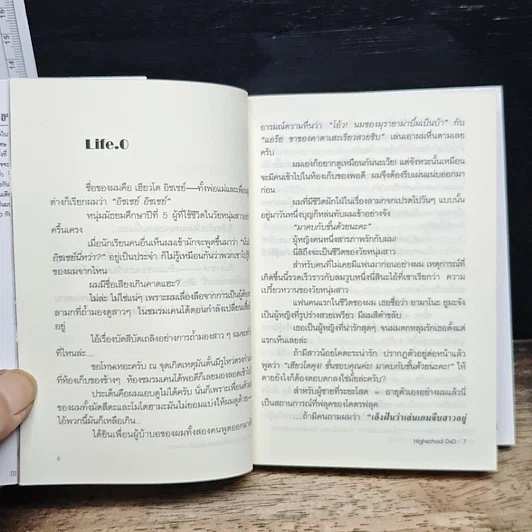 Life.0
ชื่อของผมคือ เฮียวโด อิซเซย์—ทั้งพ่อแม่และเพื่อน
ต่างก็เรียกผมว่า "อิซเซย์ อิซเซย์"
หนุ่มมัธยมศึกษาปีที่ 5 ผู้ที่ใช้ชีวิตในวัยหนุ่มสาว
ครื้นเครง
เมื่อนักเรียนคนอื่นเห็นผมเข้ามักจะพูดขึ้นมาว่า
อิซเซย์นี่หว่า?" อยู่เป็นประจำ ก็ไม่รู้เหมือนกันว่าพวกเขาไปรู้
ของผมจากไหน
ผมมีชื่อเสียงเกินคาดแฮะ?
ไม่ล่ะ ไม่ใช่แน่ๆ เพราะผมเลื่องลือจากการเป็นผู้ต้อง
ลามกที่ถ้ำมองดูสาวๆ ในชมรมเคนโด้ตอนกำลังเปลี่ยนเสื้อ
อยู่
ไอ้เรื่องบัดสีบัดเถลิงอย่างการถ้ำมองสาว ๆ ผมจะทำ
ที่ไหนล่ะ....
ขอโทษเหอะครับ ณ จุดเกิดเหตุนั่นผมมีรูโหว่ตรงกำแพง
ที่ห้องเก็บของข้างๆ ห้องชมรมเคนโด้พอดีก็เลยลองส่องดู
ประเด็นคือผมแอบดูไม่ได้ครับ นั่นก็เพราะเพื่อนตัวดี
ของผมทั้งมัตสึดะและโมโตฮามะมันไม่ยอมแบ่งให้ผมดูด้วย—
ไอ้พวกนี้มันก็เหลือเกิน...
ได้ยินเพื่อนผู้บ้าบอของผมทั้งสองคนพูดออกมาด้วย
6
อารมณ์ความหื่นว่า "โอ้ว! นมของมุรายาม่าบึ้มเป็นบ้า" กับ
"แอร๊ย ขาของคาตาเสะเรียวสวยชิบ" เล่นเอาผมหื่นตามเลย
ครับ
ผมเองก็อยากดูเหมือนกันนะเว้ย! แต่จังหวะนั้นเหมือน
จะมีคนเข้าไปในห้องเก็บของพอดี ผมจึงต้องรีบเผ่นแน่บออกมา
ก่อน
ผมที่มีชีวิตฝักใฝ่ในเรื่องลามกจกเปรตไปวันๆ แบบนั้น
อยู่มาวันหนึ่งบุญก็หล่นทับผมเข้าอย่างจัง
"มาคบกับชั้นด้วยนะคะ"
ผู้หญิงคนหนึ่งสารภาพรักกับผม!
นี่สิถึงจะเป็นชีวิตของวัยหนุ่มสาว
สำหรับคนที่ไม่เคยมีแฟนมาก่อนอย่างผม เหตุการณ์ที่
เกิดขึ้นนี้รวดเร็วราวกับลมวูบหนึ่งนี่สินะไอ้ที่เขาเรียกว่า ความ
เปรี้ยวหวานของวัยหนุ่มสาว
แฟนคนแรกในชีวิตของผม เธอชื่อว่า อามาโนะ ยูมะจัง
เป็นผู้หญิงที่รูปร่างสวยเพรียว มีผมสีดำขลับ
เธอเป็นผู้หญิงที่น่ารักสุดๆ จนผมตกหลุมรักเธอตั้งแต่
แรกเห็นเลยล่ะ
ถ้ามีสาวน้อยโคตรจะน่ารัก ปรากฏตัวอยู่ต่อหน้าแล้ว
พูดว่า "เฮียวโดคุง! ชั้นชอบคุณค่ะ! มาคบกับชั้นด้วยนะคะ!" ให้
ตายยังไงก็ต้องตอบตกลงใช่มั้ยล่ะครับ?
สำหรับผู้ชายที่ระยะโสด = อายุตัวเองอย่างผมแล้วนี่
เป็นสถานการณ์ที่ฟลุคของโคตรฟลุค
....ถ้ามีคนถามผมว่า "เอ็งฝันว่าเล่นเกมจีบสาวอยู่
Highschool DxD : 7